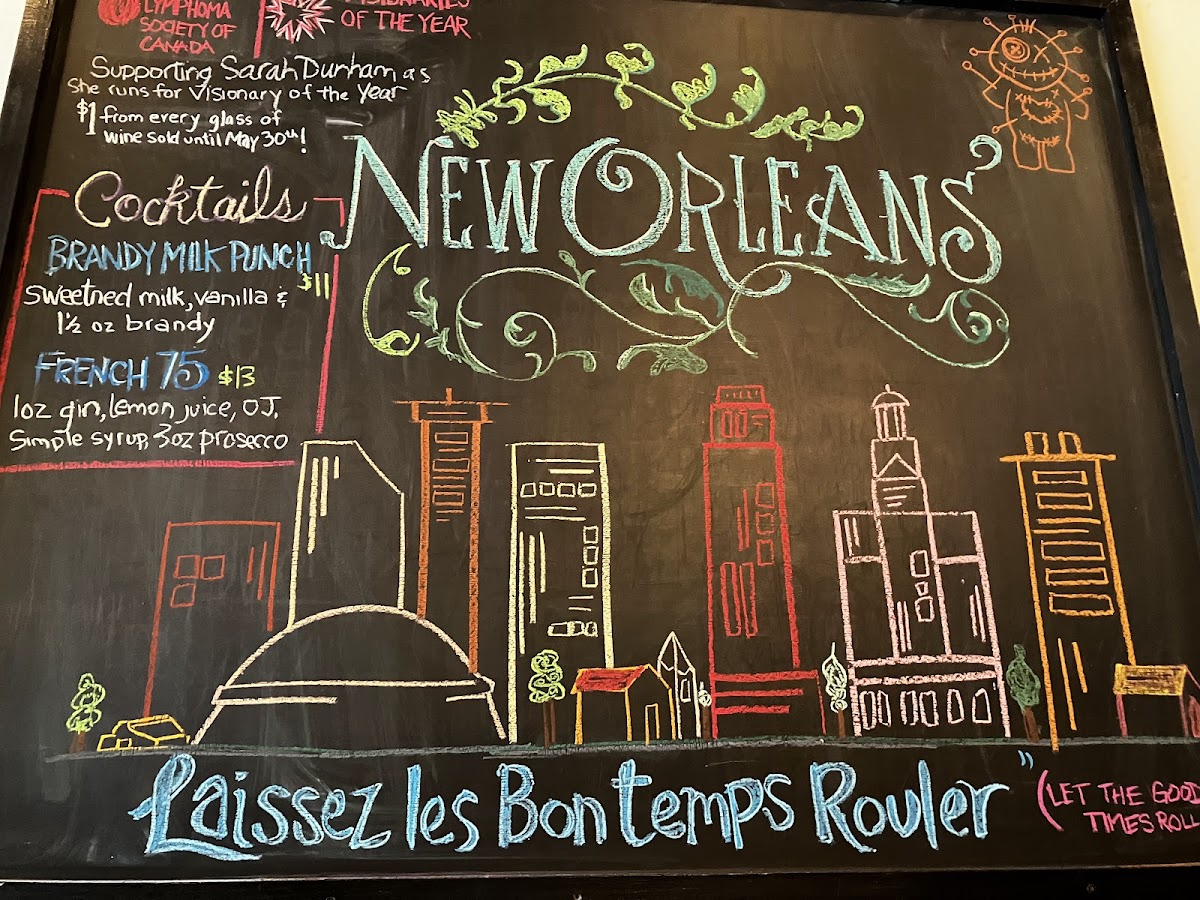 LYMPHOMA
SOCIETY OF
CANADA
VISIONARIES
OF THE YEAR
Supporting Sarah Dunham as
she runs for Visionary of the Year
$1 from every glass of
wine sold until May 30th!
Cocktails
BRANDY MILK PUNCH
$11
Sweetned milk, vanilla &
1½ oz brandy
FRENCH 75 $13
1oz gin, lemon juice, OJ,
Simple syrup, 3oz prosecco
NEW ORLEANS
"Laissez les Bon temps Rouler"
(LET THE GOOD
TIMES ROLL